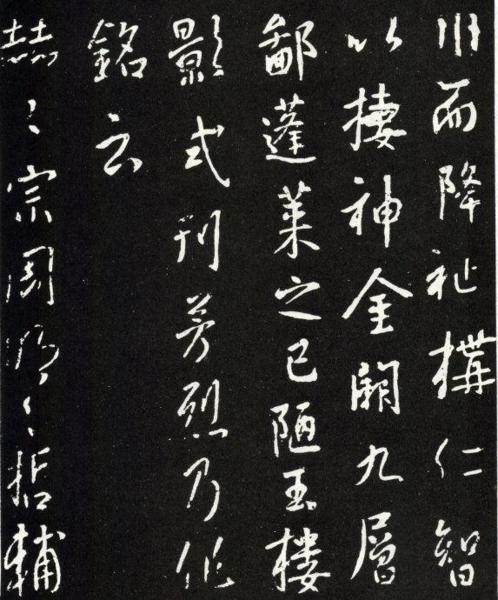 川而降祉構仁智
以棲神金闕九層
鄙蓬萊之已陋玉樓
景式刊芳烈乃作
銘云
赫〻宗周明〻哲輔